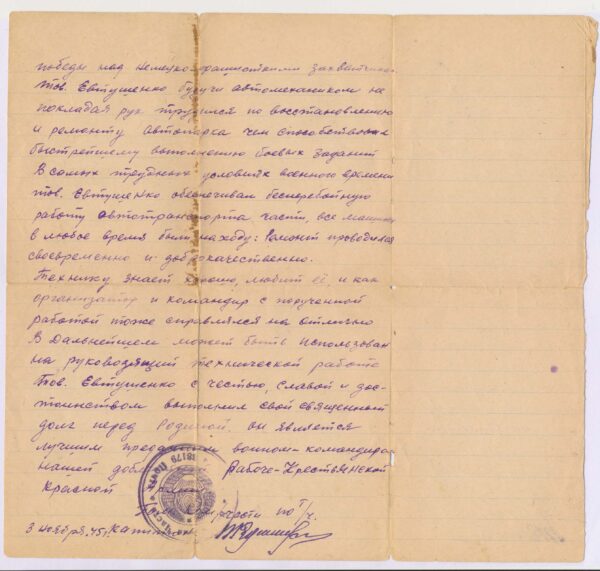 победы над немецко-фашисткими захватчика
тов. Евтушенко будучи автомехаником не
покладая рук трудился по восстановлению
и ремонту автопарка чем способствовал
быстрейшему выполнению боевых заданий
В самых трудных условиях военного времени
тов. Евтушенко обеспечивал бесперебойную
работу автотранспорта части, все машины
в любое время были на ходу: Ремонт проводился
своевременно и доброкачественно.
Технику знает хорошо, любит её, и как
организатор и командир с порученной
работой тоже справлялся на отлично
В Дальнейшем может быть Использован
на руководящей технической работе
Тов. Евтушенко с честью, славой и дос-
тоинством выполнил свой священный
долг перед Родиной. он является
лучшим преданным воином-командиром
нашей Рабоче-Крестьянской
Красной
части по т/ч.
3 ноября. 45г.